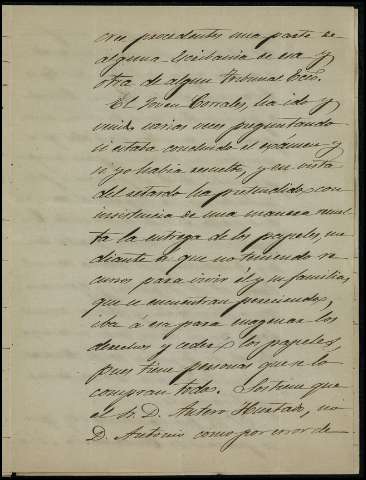 cree procedentes una parte de
alguna Escribania de esa y
otra de algun tribunal Ecco.
El Joven Corrales, ha ido y
venido varias veces preguntando
si estaba concluido el exámen y
si yo habia resuelto, y en vista
del retardo ha pretendido con
insistencia de una manera resuel-
ta la entrega de los papeles, me
diante á que no teniendo re
cursos para vivir él y su familia,
que se encuentran pereciendo,
iba á esa para enagenar los
derechos y ceder los papeles,
pues tiene personas que se lo
compran todo. Sostiene que
el Sr. D. Antero Hurtado, no
D. Antonio como por error de